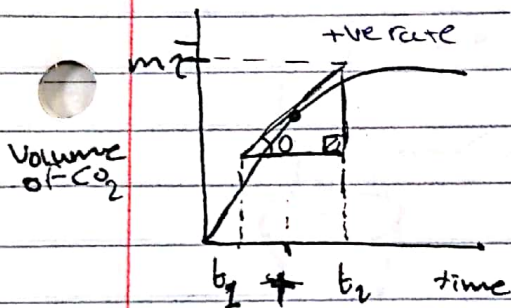 +ve rate
Volume
of CO2
θ
t1 t t2 time